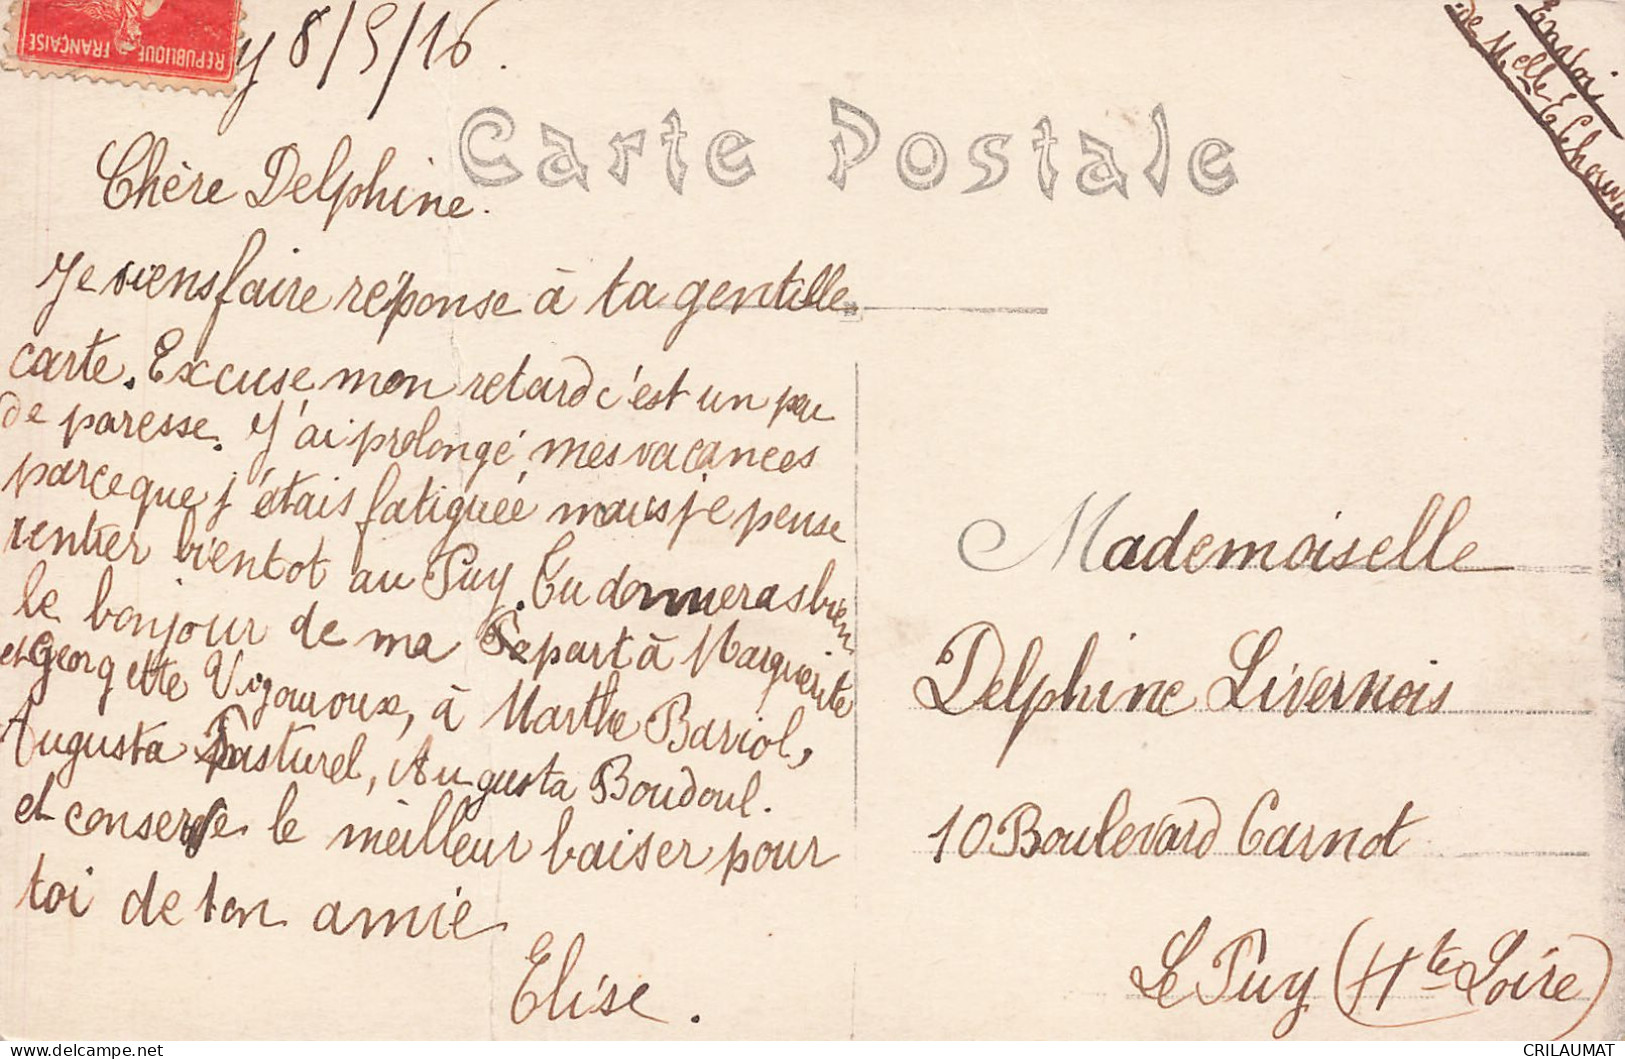 REPUBLIQUE FRANÇAISE
y 8/5/16.
Envoi
de Melle E
Carte Postale
Chère Delphine.
Je viens faire réponse à ta gentille
carte. Excuse mon retard c'est un peu
de paresse. J'ai prolongé mes vacances
parceque j'étais fatiguée mais je pense
rentrer bientot au Puy. Tu donneras bien
le bonjour de ma part à Marguerite
et Georgette Vigouroux, à Marthe Bariol,
Augusta Pasturel, Augusta Boudoul.
et conserve le meilleur baiser pour
toi de ton amie
Elise.
Mademoiselle
Delphine Livernois
10 Boulevard Carnot
Le Puy (Hte Loire)
CRILAUMAT